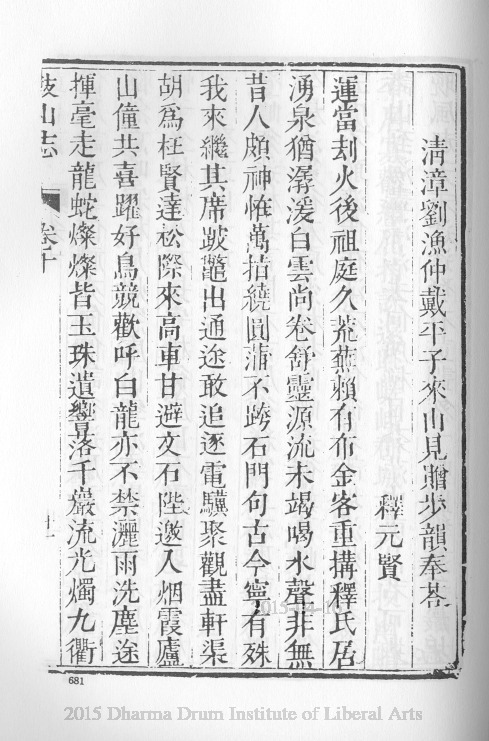 清漳劉漁仲戴平子來山見贈步韻奉荅
釋元賢
運當刦火後祖庭久荒蕪賴有布金客重搆釋氏居
湧泉猶潺湲白雲尚卷舒靈源流未竭喝水聲非無
昔人頗神恠萬指繞圓蒲不跨石門句古今寧有殊
我來繼其席跛鼈出通途敢追逐電驥聚觀盡軒渠
胡爲枉賢達松際來高車甘避文石陛邀入烟霞廬
山僮共喜躍好鳥競歡呼白龍亦不禁灑雨洗塵途
揮毫走龍蛇燦燦皆玉珠遺響落千巖流光燭九衢
鼓山志
卷十
十一
681
2015 Dharma Drum Institute of Liberal Arts